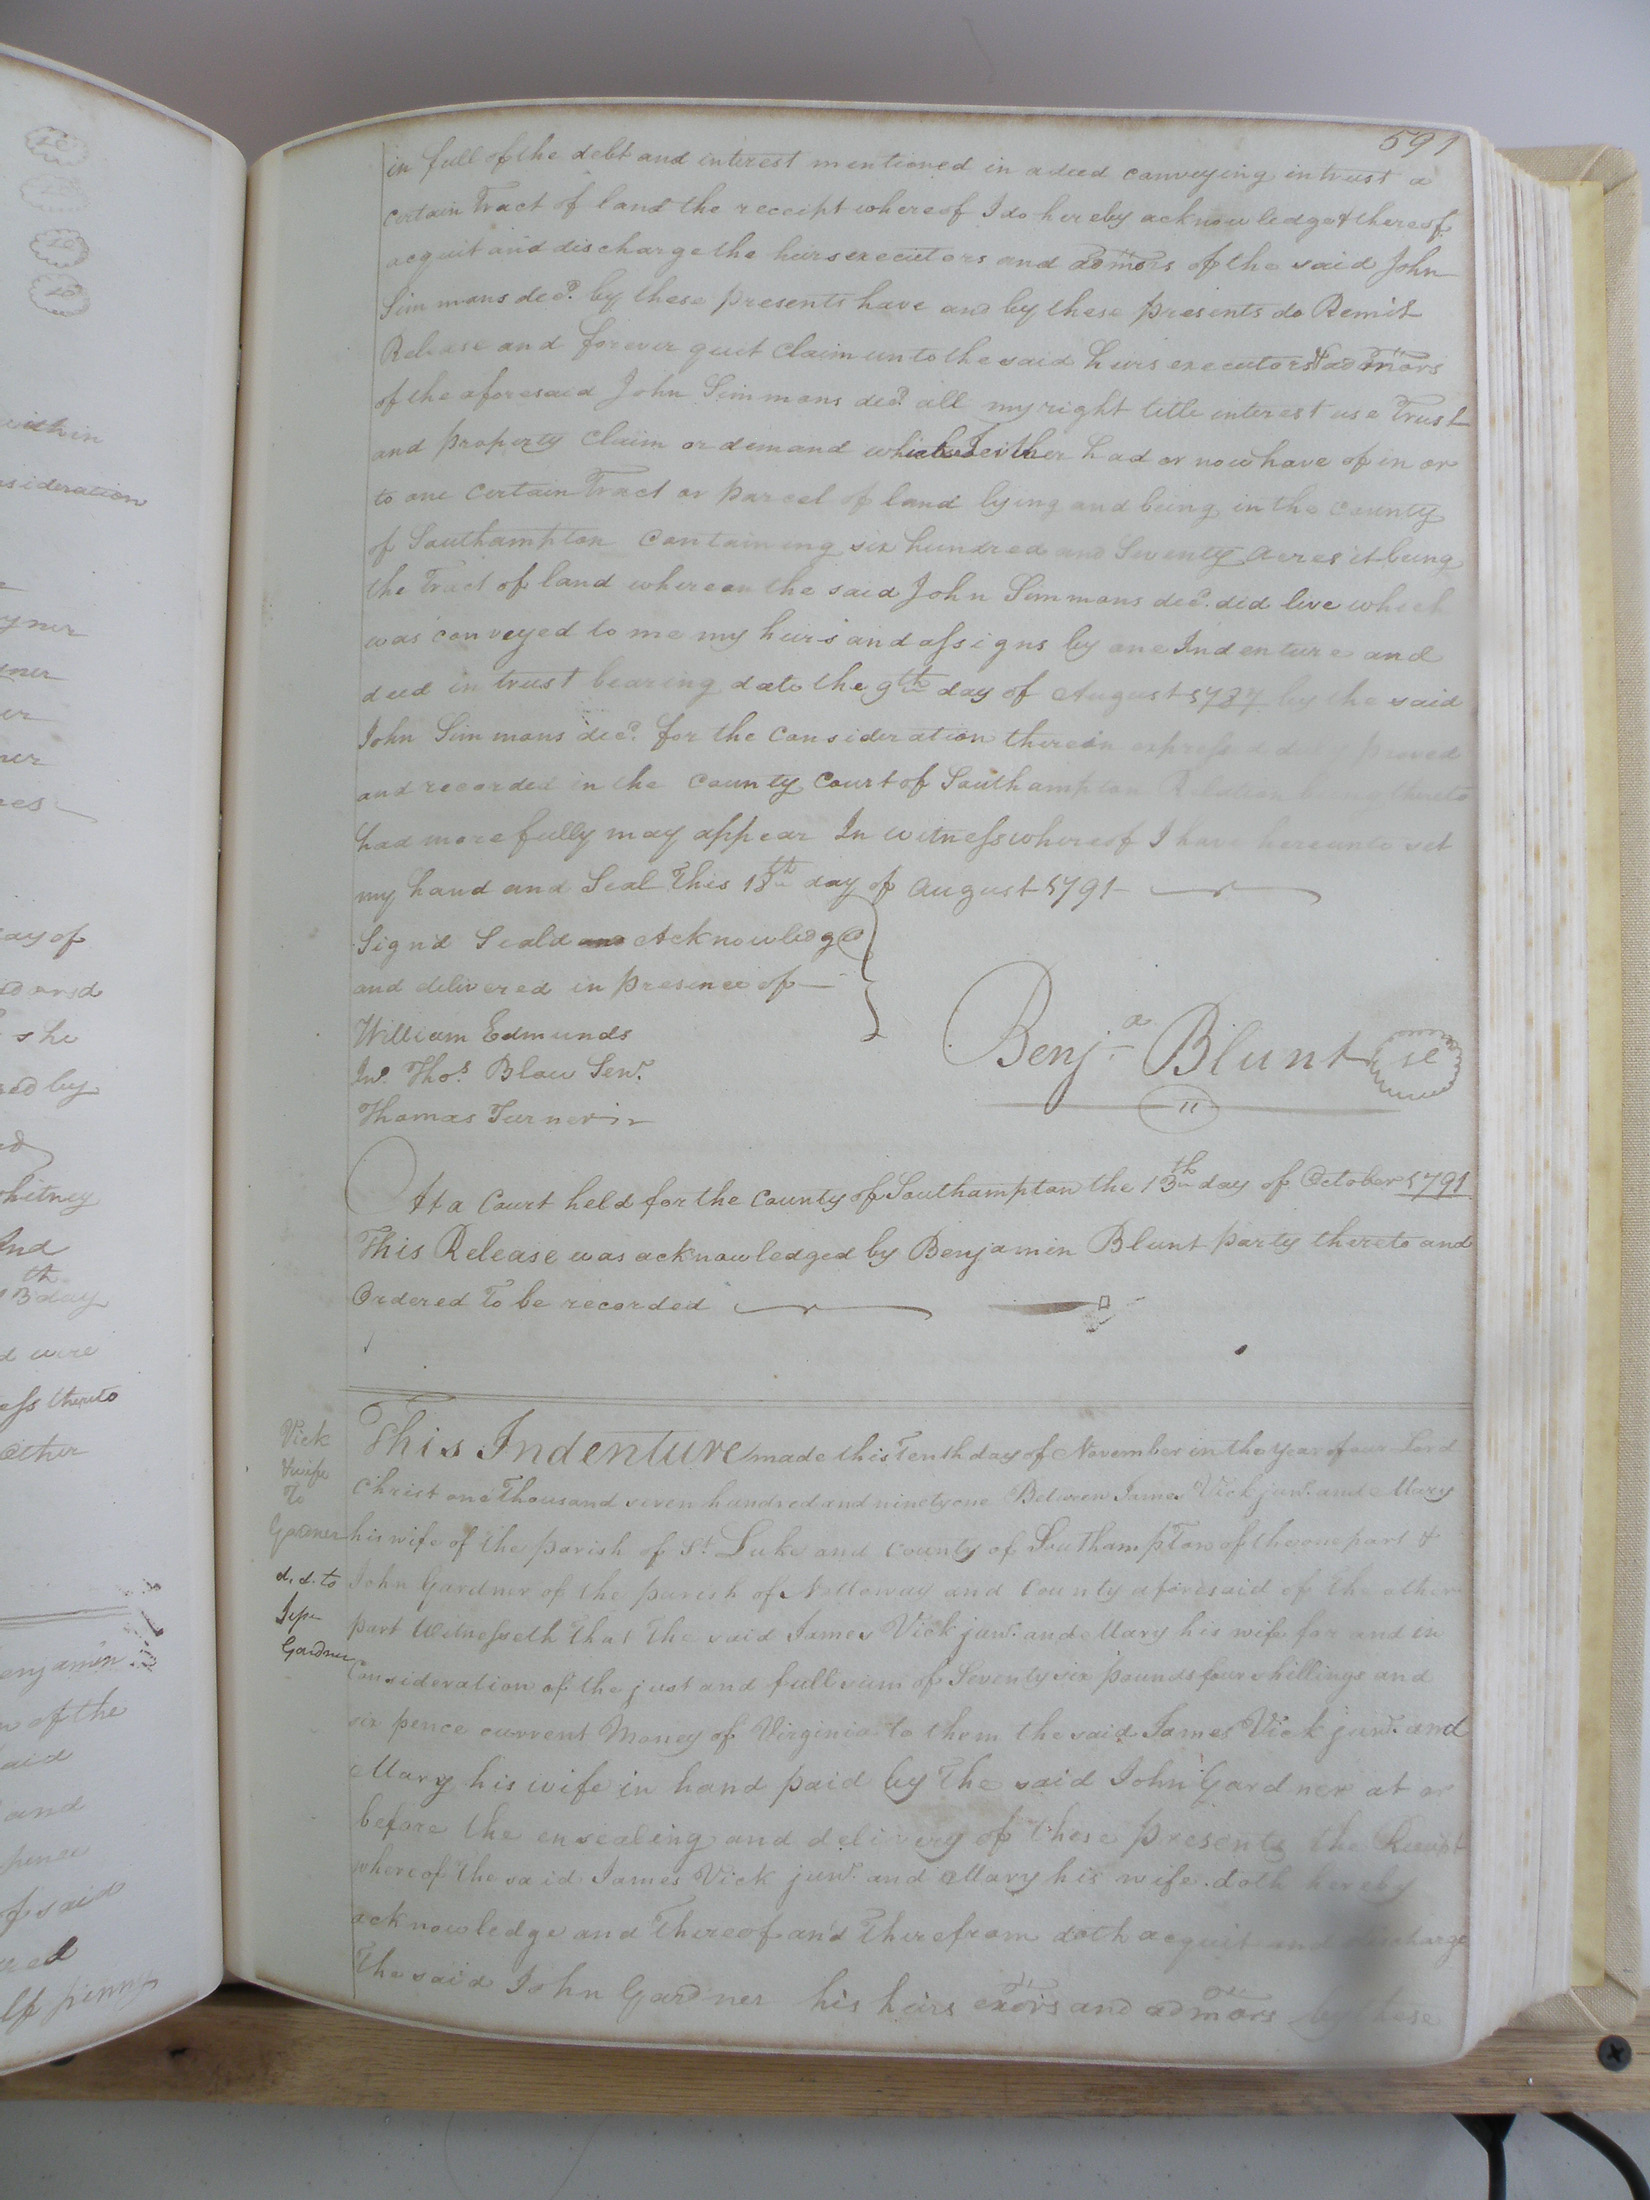 591
in full of the debt and interest mentioned in a deed conveying in trust a
certain Tract of land the receipt whereof I do hereby acknowledge & thereof
acquit and discharge the heirs executors and admors of the said John
Simmons decd. by these presents have and by these presents do Remit
Release and forever quit claim unto the said heirs executors & admors
of the aforesaid John Simmons decd. all my right title interest use Trust
and property claim or demand which I either had or now have of in or
to one certain Tract or parcel of land lying and being in the county
of Southampton Containing six hundred and Seventy acres it being
the Tract of land whereon the said John Simmons decd. did live which
was conveyed to me my heirs and assigns by one Indenture and
deed in trust bearing date the 9th day of August 1787 by the said
John Simmons decd. for the Consideration therein expressed duly proved
and recorded in the County Court of Southampton Relation being thereto
had more fully may appear In witness whereof I have hereunto set
my hand and Seal This 18th day of August 1791
Sign'd Seald and Acknowledg'd
and delivered in presence of
William Edmunds
Jno. Thos. Blow Senr.
Thomas Turner Jr
Benja. Blunt se
At a Court held for the County of Southampton the 13th day of October 1791
This Release was acknowledged by Benjamin Blunt party thereto and
Ordered To be recorded
Vick
& wife
To
Gardner
d. d. to
Jesse
Gardner
This Indenture made this Tenth day of November in the year of our Lord
Christ one Thousand seven hundred and ninety one Between James Vick junr. and Mary
his wife of the parish of St. Luke and County of Southampton of the one part &
John Gardner of the parish of Nottoway and County aforesaid of the other
part Witnesseth That The said James Vick junr. and Mary his wife for and in
Consideration of the just and full sum of Seventy six pounds four shillings and
six pence current Money of Virginia to them the said James Vick junr. and
Mary his wife in hand paid by The said John Gardner at or
before the ensealing and delivery of these presents the Receipt
whereof the said James Vick junr. and Mary his wife doth hereby
acknowledge and Thereof and Therefrom doth acquit and discharge
The said John Gardner his heirs exors and admors by these